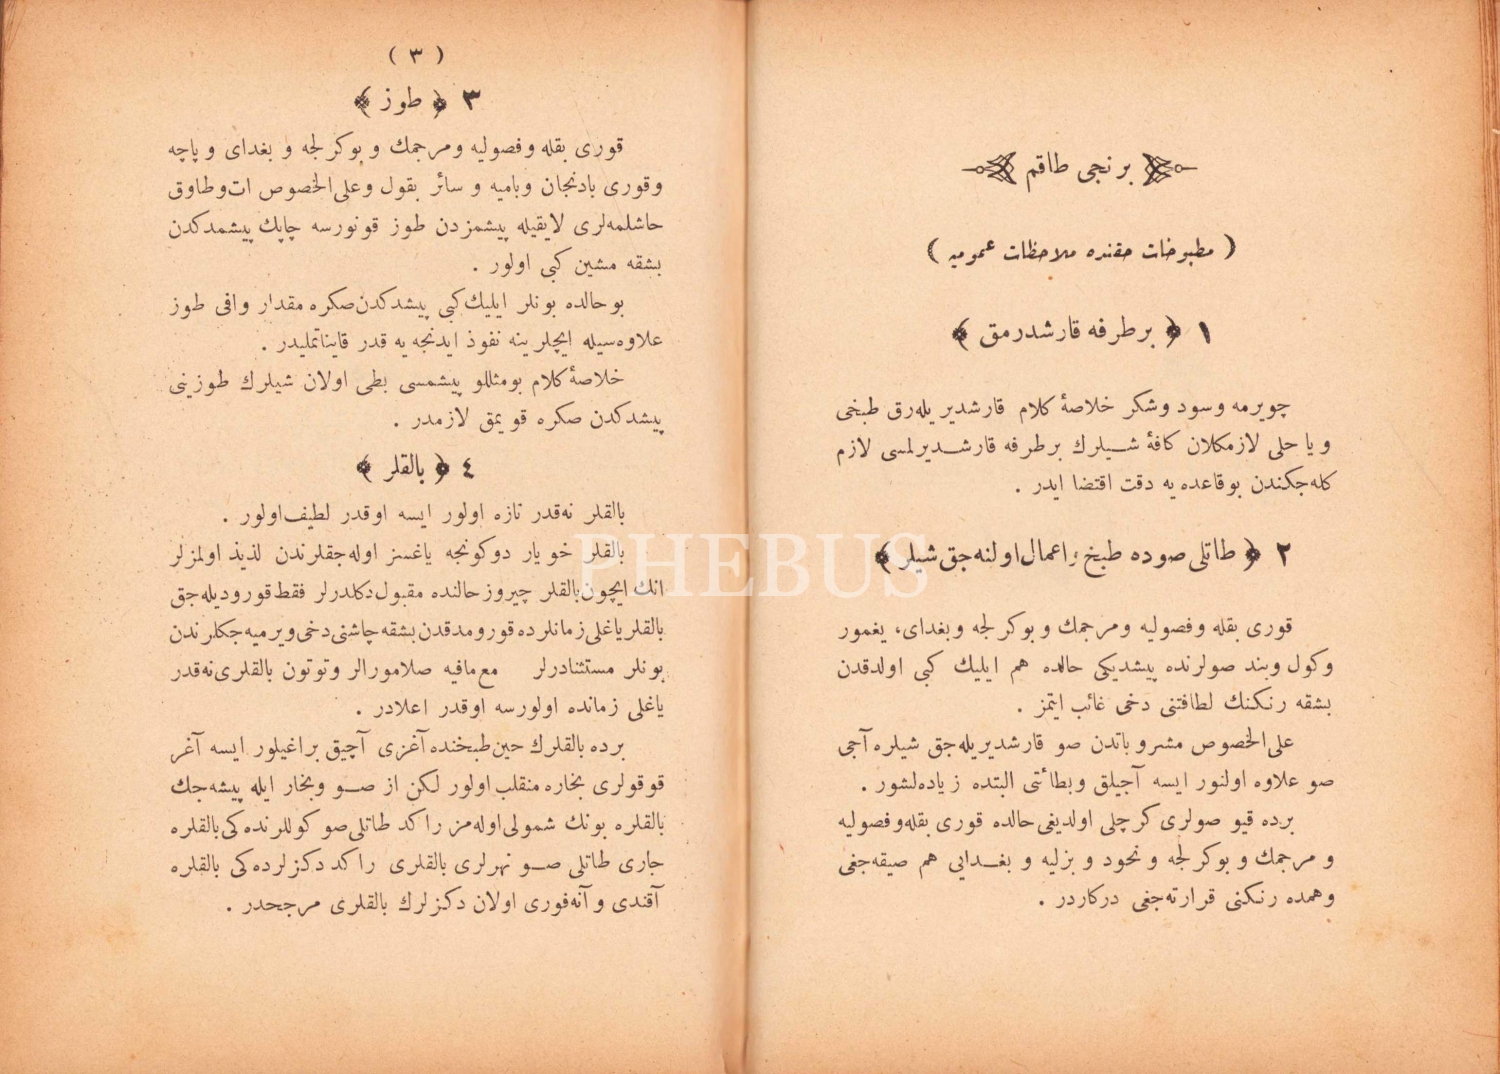 برنجی طاقم
( مطبوخات حقنده ملاحظات عمومیه )
١ ﴿ برطرفه قارشدرمق ﴾
چویرمه وسود وشکر خلاصهٔ کلام قارشدیریله‌رق طبخی
ویا حلی لازمکلان کافهٔ شیلرك برطرفه قارشدیرلمسی لازم
کله‌جکندن بوقاعده‌یه دقت اقتضا ایدر .
٢ ﴿ طاتلی صوده طبخ و اعمال اولنه‌جق شیلر ﴾
قوری بقله وفصولیه ومرجمك و بوکرلجه وبغدای، یغمور
وکول وبند صولرنده پیشدیکی حالده هم ایلیك کبی اولدقدن
بشقه رنکنك لطافتنی دخی غائب ایتمز .
علی‌الخصوص مشروباتدن صو قارشدیریله‌جق شیلره آجی
صو علاوه اولنور ایسه آجیلق وبطائتی البتده زیاده‌لشور .
برده قیو صولری کرچلی اولدیغی حالده قوری بقله‌وفصولیه
و مرجمك و بوکرلجه و نخود و بزلیه و بغدایی هم صیقه‌جغی
وهمده رنکنی قرارته‌جغی درکاردر .
( ٣ )
٣ ﴿ طوز ﴾
قوری بقله وفصولیه ومرجمك و بوکرلجه و بغدای و پاچه
وقوری بادنجان وبامیه و سائر بقول وعلی‌الخصوص ات‌وطاوق
حاشلمه‌لری لایقیله پیشمزدن طوز قونورسه چاپك پیشمدکدن
بشقه مشین کبی اولور .
بوحالده بونلر ایلیك‌کبی پیشدکدن‌صکره مقدار وافی طوز
علاوه‌سیله ایچلرینه نفوذ ایدنجه‌یه قدر قایناتملیدر .
خلاصهٔ کلام بومثللو پیشمسی بطی اولان شیلرك طوزینی
پیشدکدن صکره قویمق لازمدر .
٤ ﴿ بالقلر ﴾
بالقلر نه‌قدر تازه اولور ایسه اوقدر لطیف‌اولور .
بالقلر خویار دوکونجه یاغسز اوله‌جقلرندن لذیذ اولمزلر
انك ایچون‌بالقلر چیروزحالنده مقبول‌دکلدرلر فقط‌قورودیله‌جق
بالقلریاغلی‌زمانلرده‌قورومدقدن‌بشقه‌چاشنی‌دخی‌ویرمیه‌جکلرندن
بونلر مستثنادرلر مع‌مافیه صلامورالر وتوتون بالقلری‌نه‌قدر
یاغلی زمانده اولورسه اوقدر اعلادر .
برده بالقلرك حین‌طبخنده‌آغزی آچیق براغیلور ایسه آغر
قوقولری بخاره‌منقلب‌اولور لکن از صو وبخار ایله پیشه‌جك
بالقلره بونك شمولی‌اوله‌مز راکد طاتلی‌صو کوللرنده‌کی‌بالقلره
جاری طاتلی صو نهرلری بالقلری راکد دکزلرده‌کی بالقلره
آقندی و آنه‌فوری اولان دکزلرك بالقلری مرجحدر .
PHEBUS